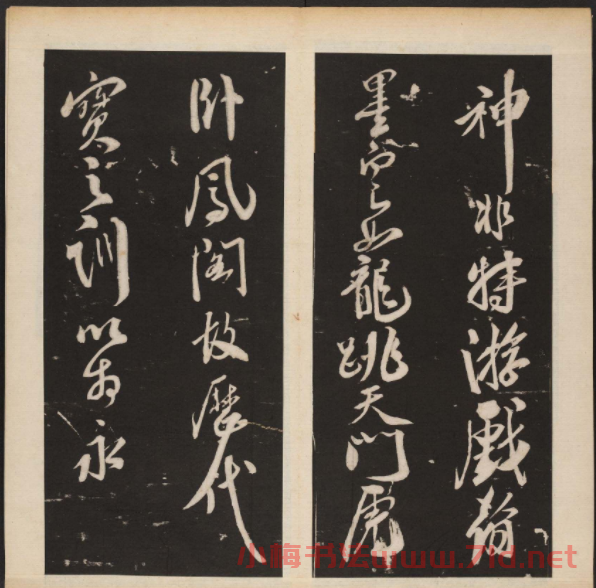 神非特游戲翰
墨而已如龍跳天門虎
卧鳳閣故歷代
寶之訓以為永
小梅书法www.71d.net